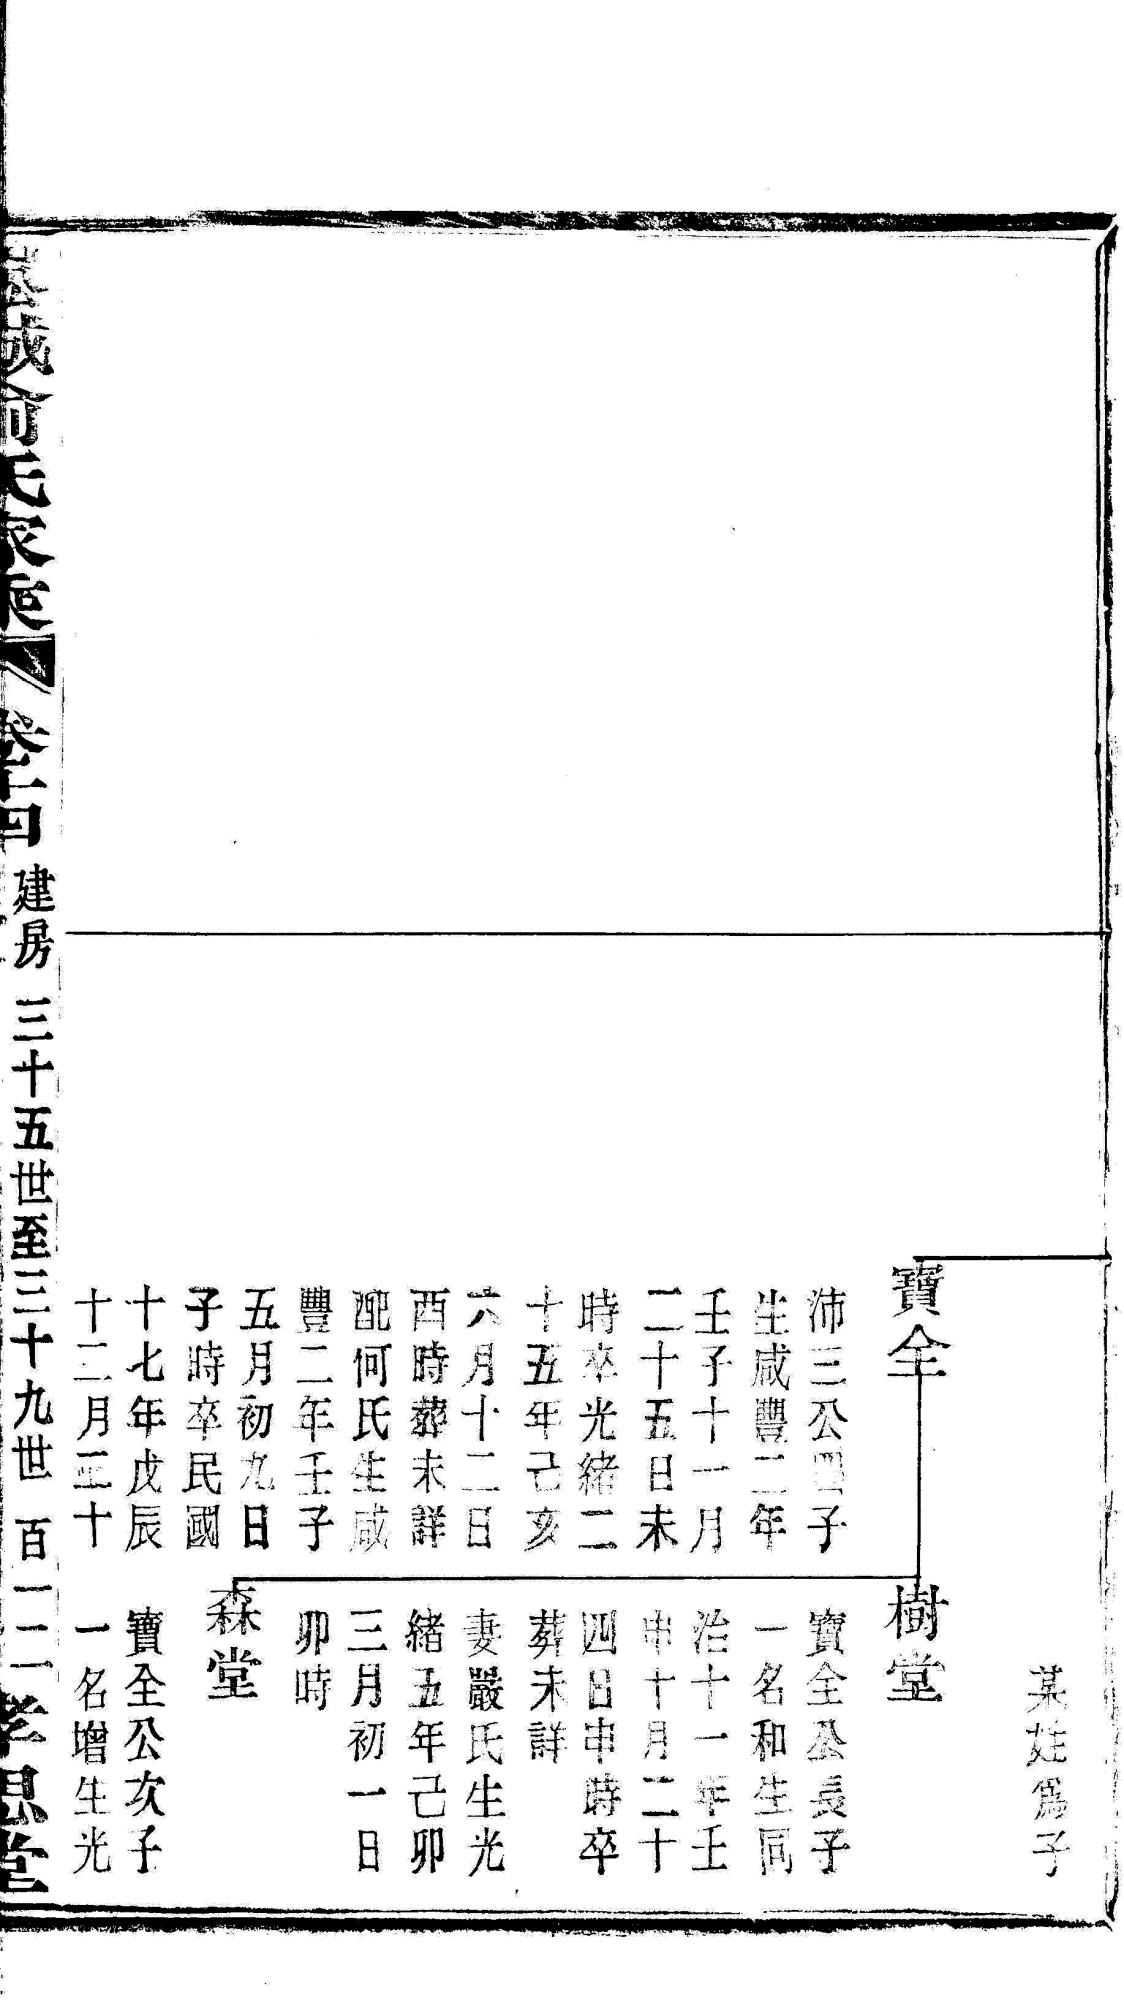 某姓爲子
寶全
沛三公四子
生咸豐二年
壬子十一月
二十五日未
時卒光緒二
十五年己亥
六月十二日
酉時葬未詳
配何氏生咸
豐二年壬子
五月初九日
子時卒民國
十七年戊辰
十二月三十
樹堂
寶全公長子
一名和生同
治十一年壬
申十月二十
四日申時卒
葬未詳
妻嚴氏生光
緒五年己卯
三月初一日
卯時
森堂
寶全公次子
一名增生光
城俞氏家乘 卷十四 建房 三十五世至三十九世 百一二 孝思堂